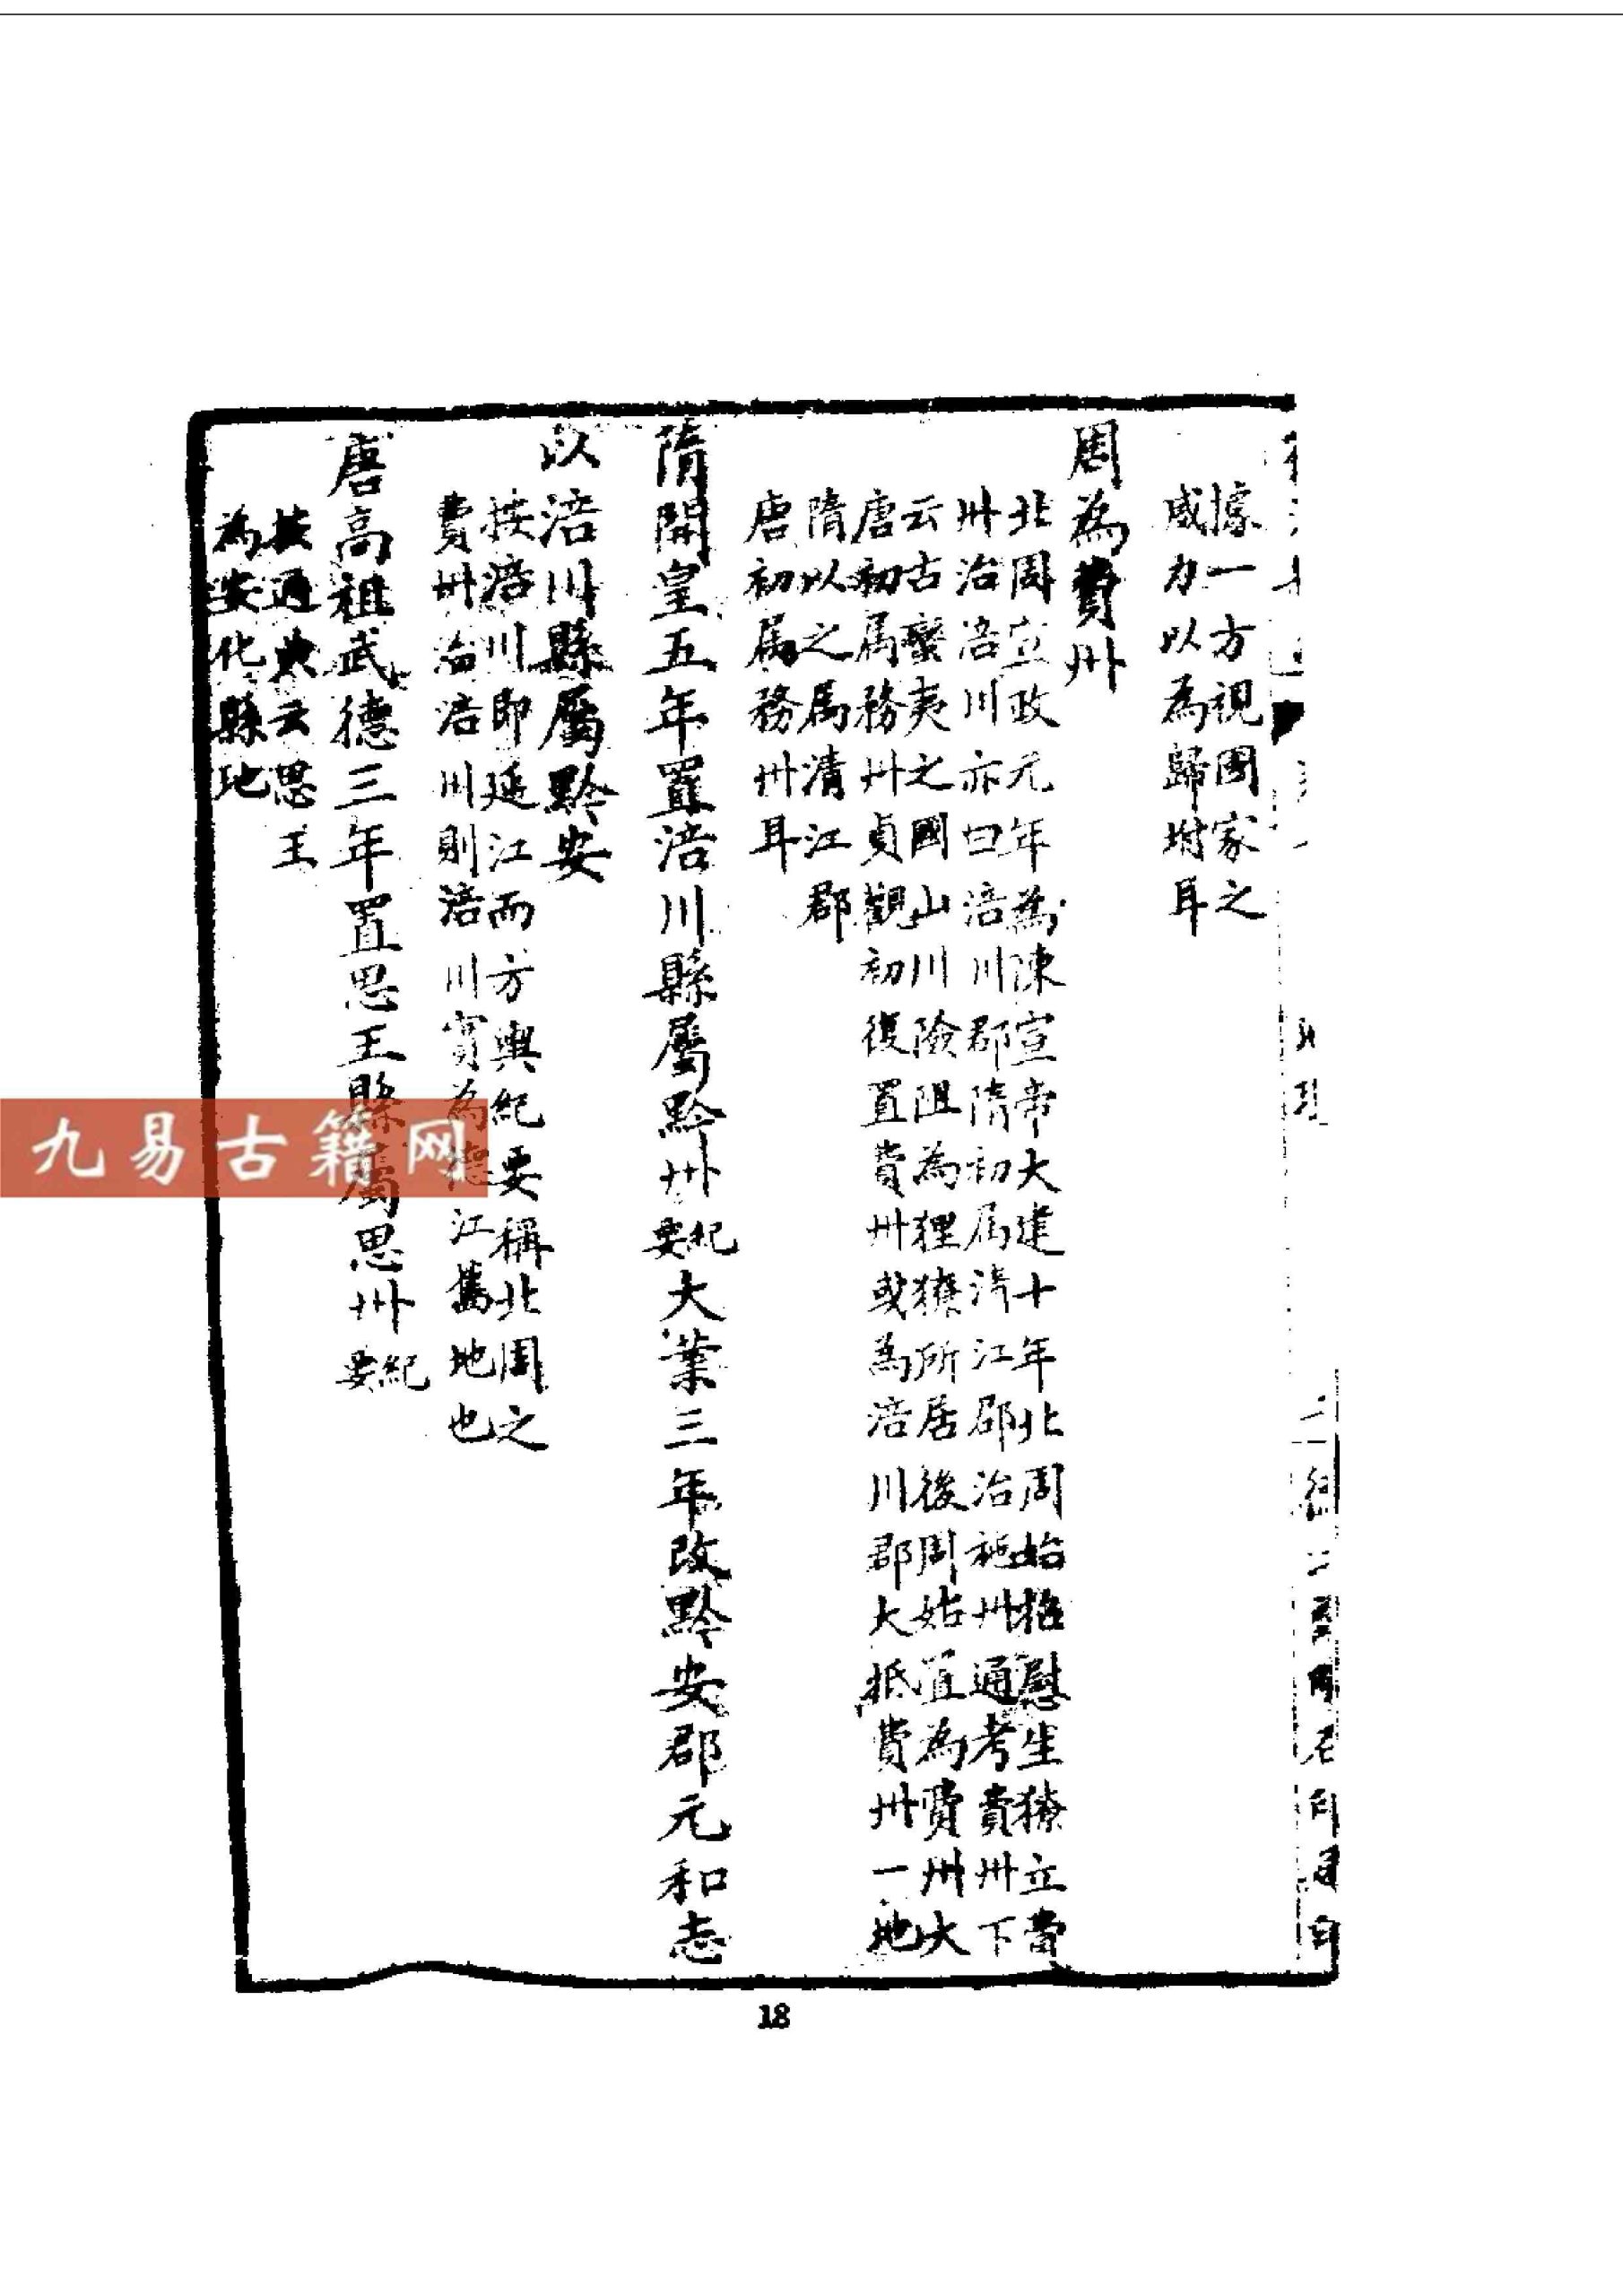 據一方視國家之
咸力以為歸坿耳
周為費州
北周立政元年為陳宣帝大建十年北周始招慰生獠立費
州治涪川亦曰涪川郡隋初屬清江郡治施州通考費州下
云古蠻夷之國山川險阻為狸獠所居後周始置為費州大
唐初屬務州貞觀初復置費州或為涪川郡大抵費州一地
隋以之屬清江郡
唐初屬務州耳
隋開皇五年置涪川縣屬黔州紀要大業三年改黔安郡元和志
以涪川縣屬黔安
按涪川即延江而方輿紀要稱北周之
費州治涪川則涪川實為德江舊地也
唐高祖武德三年置思王縣屬思州紀要
按通典云思王
為安化縣地
九易古籍网
18